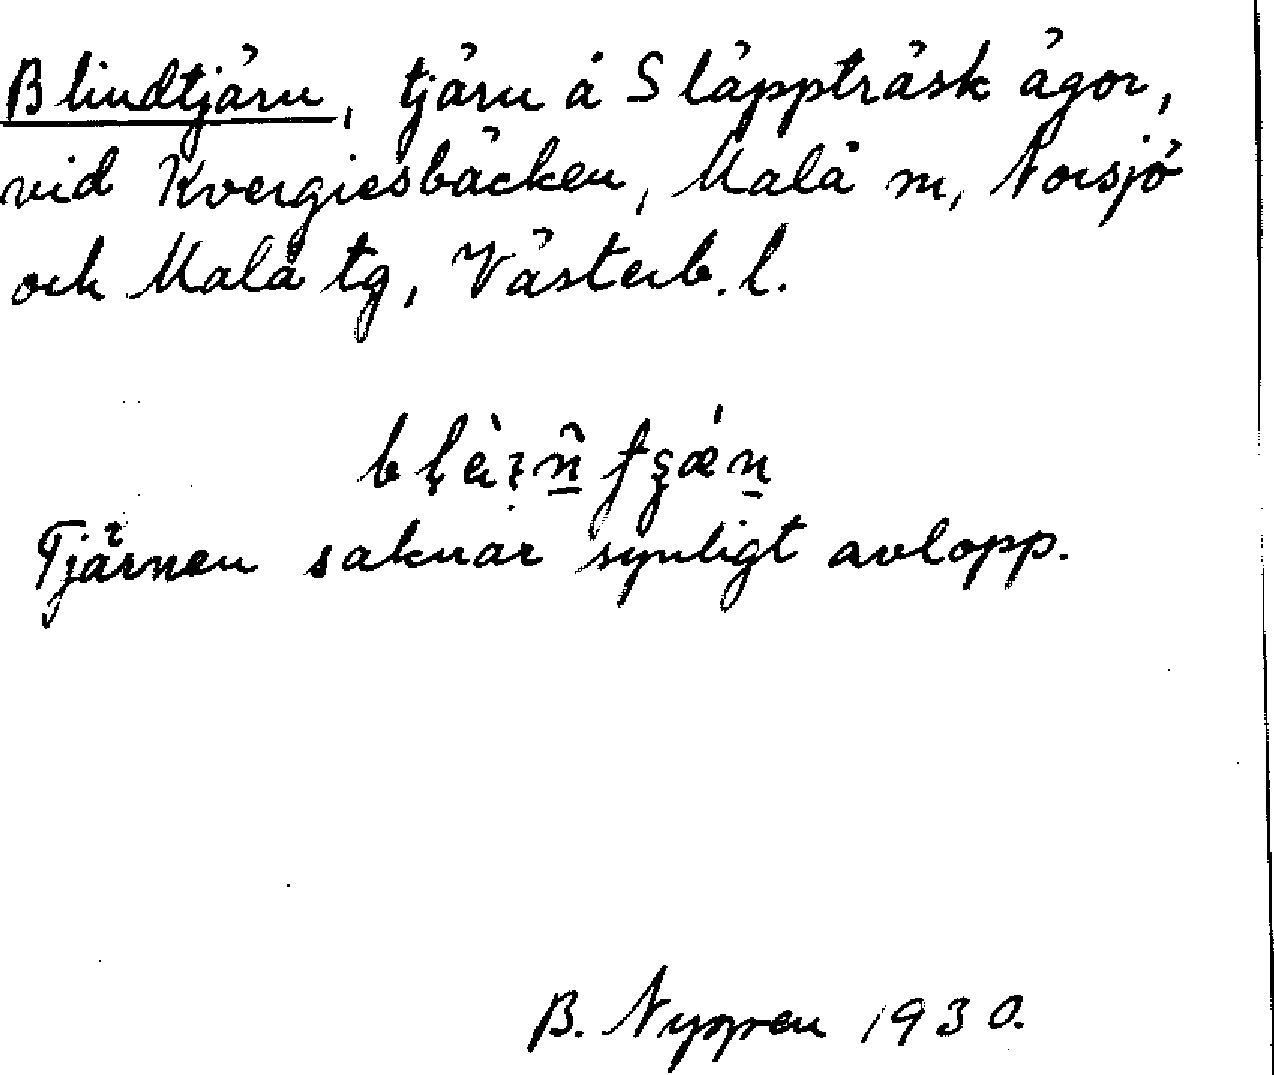 Blindtjärn, tjärn å Släppträsk ägor,
vid Kvergiesbäcken, Malå m, Norsjö
och Malå tg, Västerb. l.
Tjärnen saknar synligt avlopp.
B. 1930.